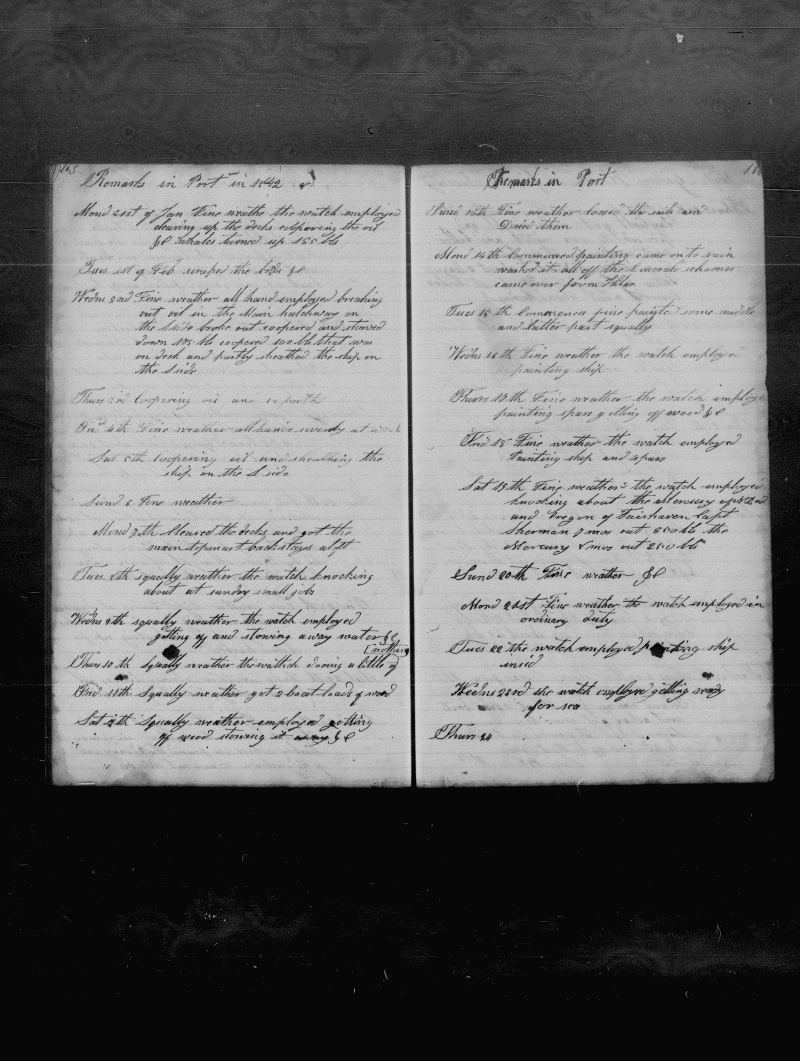 163
Remarks in Port in 1842
Mond 31st of Jan Fine weathe the watch employed
clearing up the decks coopering the oil
&c whales turned up 155 bbs
Tues 1st of Feb. scraped the bolts &c
Wedns 2nd Fine weather all hand employed breaking
out oil in the Main hatchway on
the S side broke out coopered and stowed
down 175 bbs coopered 100 bbs that was
on deck and partly sheathed the ship on
the S side
Thurs 3rd Coopering oil and so forth
Frid 4th Fine weather all hands at work
Sat 5th Coopering oil and sheathing the
ship on the S side
Sund 6 Fine weather
Mond 7th Cleared the decks and got the
main topmast backstays aloft
Tues 8th squally weather the watch knocking
about at sundry small jobs
Wedns 9th squally weather the watch employed
getting off and stowing away water &c
[nothing
Thurs 10th Squally weather the wattch doeing a little of
Frid 11th Squally weather got 2 boat loads of wood
Sat 12th Squally weather employed getting
off wood stowing it away &c
Remarks in Port
Sund 13th Fine weather losed the sails and
Dried them
Mond 14th Commenced painting came on to rain
washed it all off the schooner
came over from
Tues 15th Commences fine painted some middle
and latter part squally
Wedns 16th Fine weather the watch employed
painting ship
Thurs 17th Fine weather the watch employe
painting spars getting off wood &c
Frid 18 Fine weather the watch employed
Painting ship and spars
Sat 19th Fine weather the watch employed
knocking about the Mercury of
and Oregon of Fairhaven Capt
Sherman mos out bbs the
Mercury mos out bbs
Sund 20th Fine wether &c
Mond 21st Fine weather the watch employed in
ordinary duty
Tues 22 the watch employed painting ship
insid
Wedns 23rd the watch employed getting ready
for sea
Thurs 24